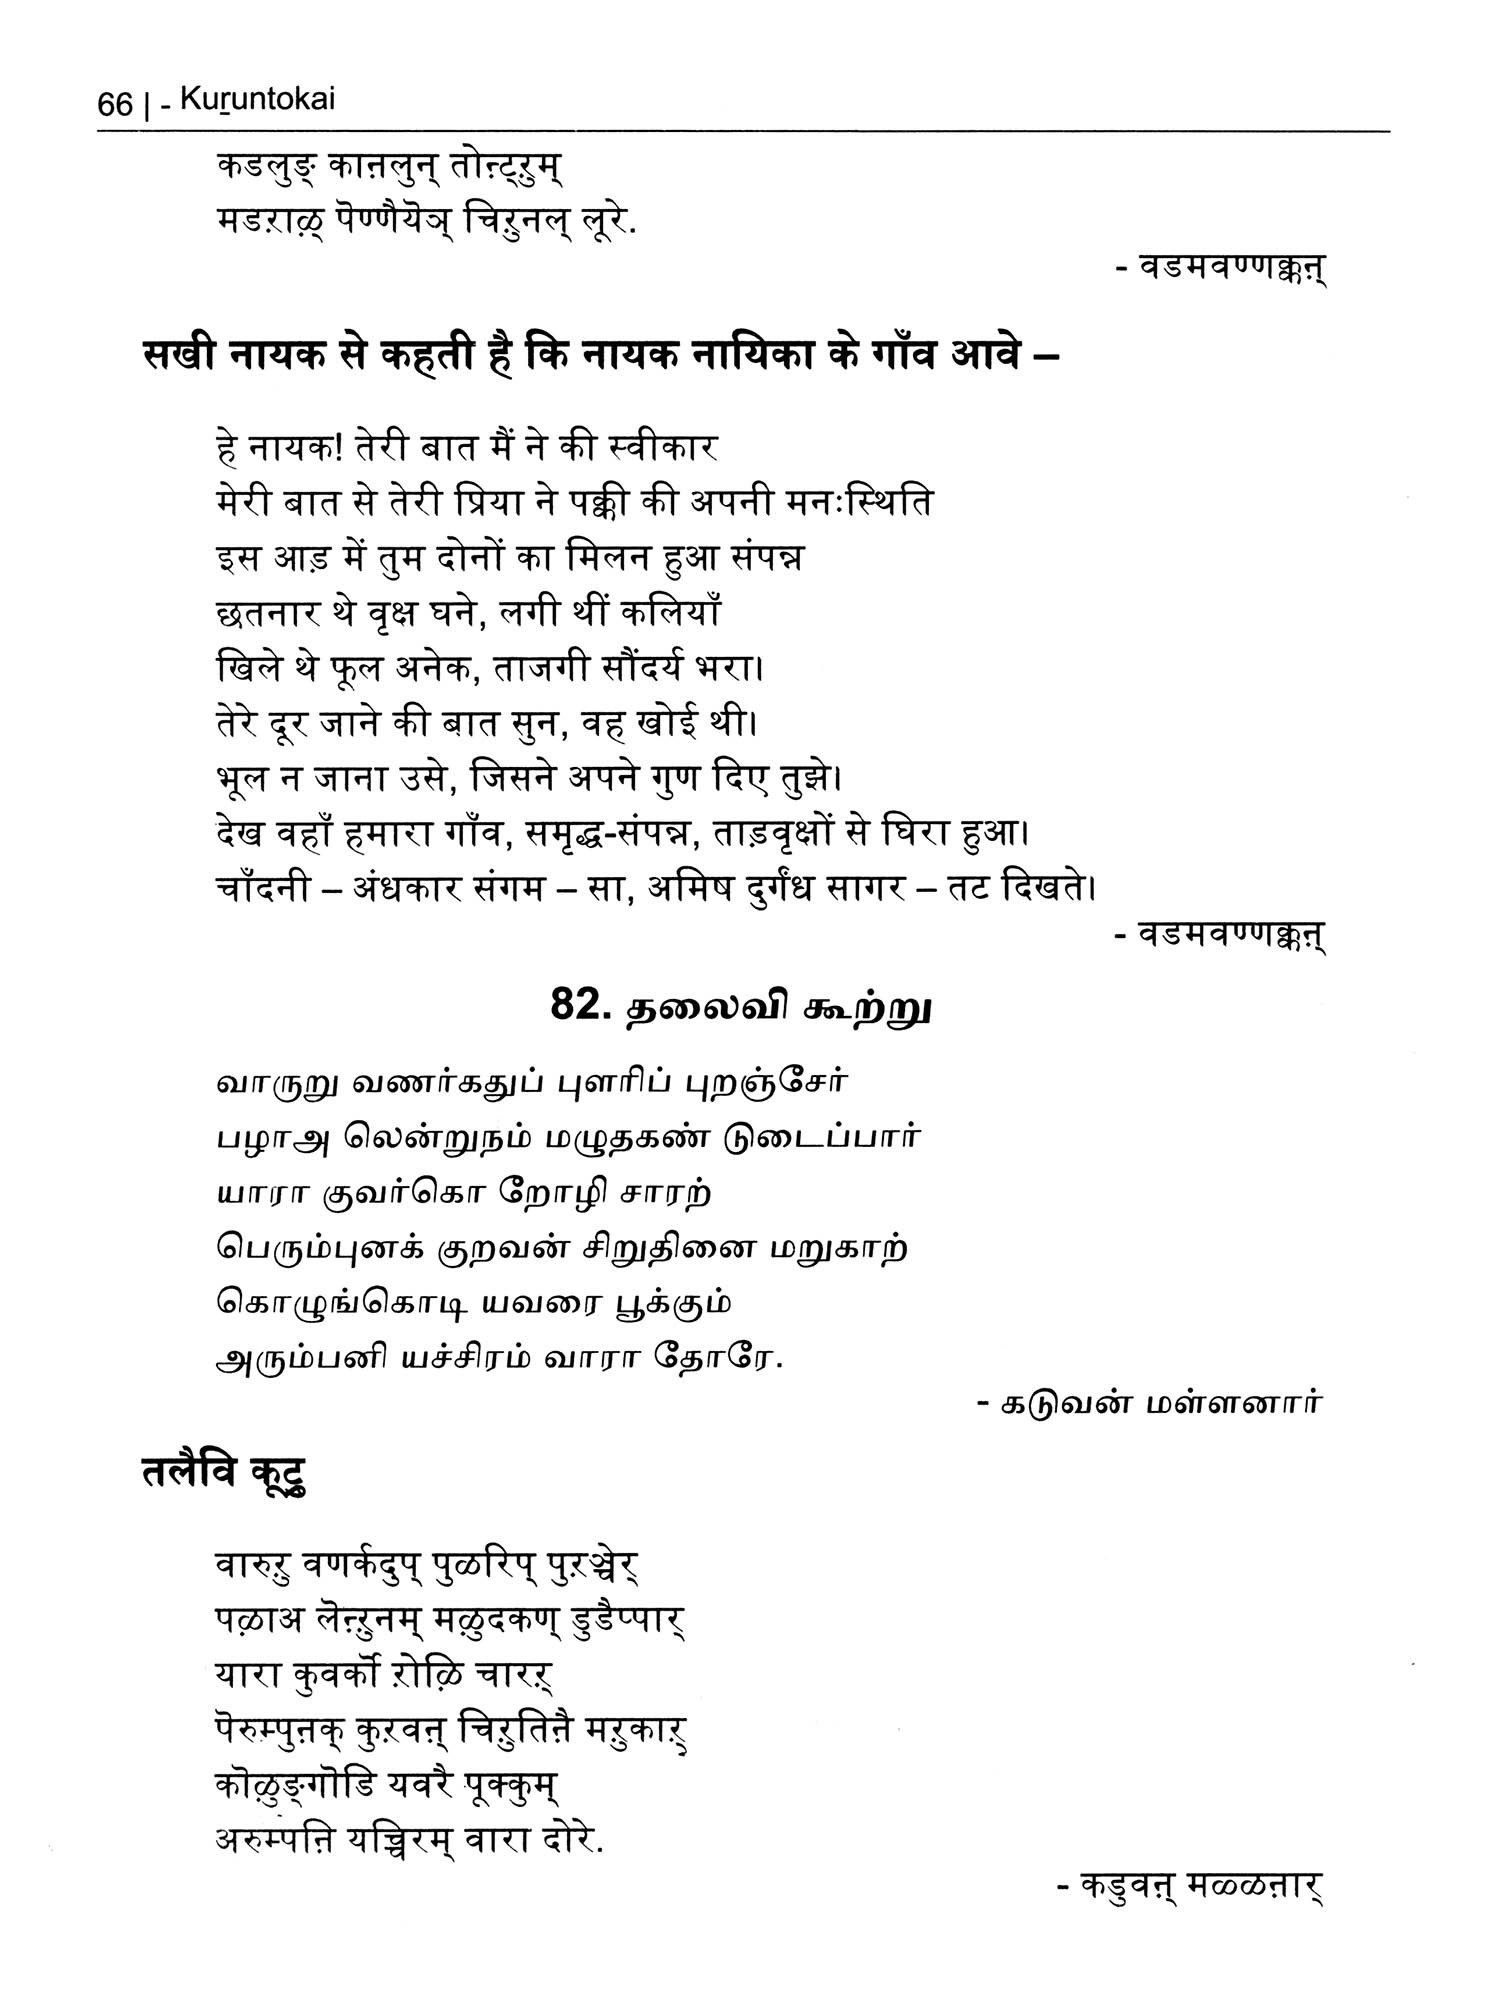 66 | - Kuṟuntokai
कडलुङ् काऩलुन् तोऩ्ट्ऱुम्
मडऱाऴ् पॆण्णैयॆञ् चिऱुनल् लूरे.
- वडमवण्णक्कऩ्
सखी नायक से कहती है कि नायक नायिका के गाँव आवे –
हे नायक! तेरी बात मैं ने की स्वीकार
मेरी बात से तेरी प्रिया ने पक्की की अपनी मनःस्थिति
इस आड़ में तुम दोनों का मिलन हुआ संपन्न
छतनार थे वृक्ष घने, लगी थीं कलियाँ
खिले थे फूल अनेक, ताजगी सौंदर्य भरा।
तेरे दूर जाने की बात सुन, वह खोई थी।
भूल न जाना उसे, जिसने अपने गुण दिए तुझे।
देख वहाँ हमारा गाँव, समृद्ध-संपन्न, ताड़वृक्षों से घिरा हुआ।
चाँदनी – अंधकार संगम – सा, अमिष दुर्गंध सागर – तट दिखते।
- वडमवण्णक्कऩ्
82. தலைவி கூற்று
வாருறு வணர்கதுப் புளரிப் புறஞ்சேர்
பழாஅ லென்றுநம் மழுதகண் டுடைப்பார்
யாரா குவர்கொ றோழி சாரற்
பெரும்புனக் குறவன் சிறுதினை மறுகாற்
கொழுங்கொடி யவரை பூக்கும்
அரும்பனி யச்சிரம் வாரா தோரே.
- கடுவன் மள்ளனார்
तलैवि कूट्रु
वारुऱु वणर्कदुप् पुळरिप् पुऱञ्चेर्
पऴाअ लॆऩ्ऱुनम् मऴुदकण् डुडैप्पार्
यारा कुवर्कॊ ऱोऴि चारऱ्
पॆरुम्पुऩक् कुऱवऩ् चिऱुतिऩै मऱुकाऱ्
कॊऴुङ्गॊडि यवरै पूक्कुम्
अरुम्पऩि यच्चिरम् वारा दोरे.
- कडुवऩ् मळ्ळऩार्